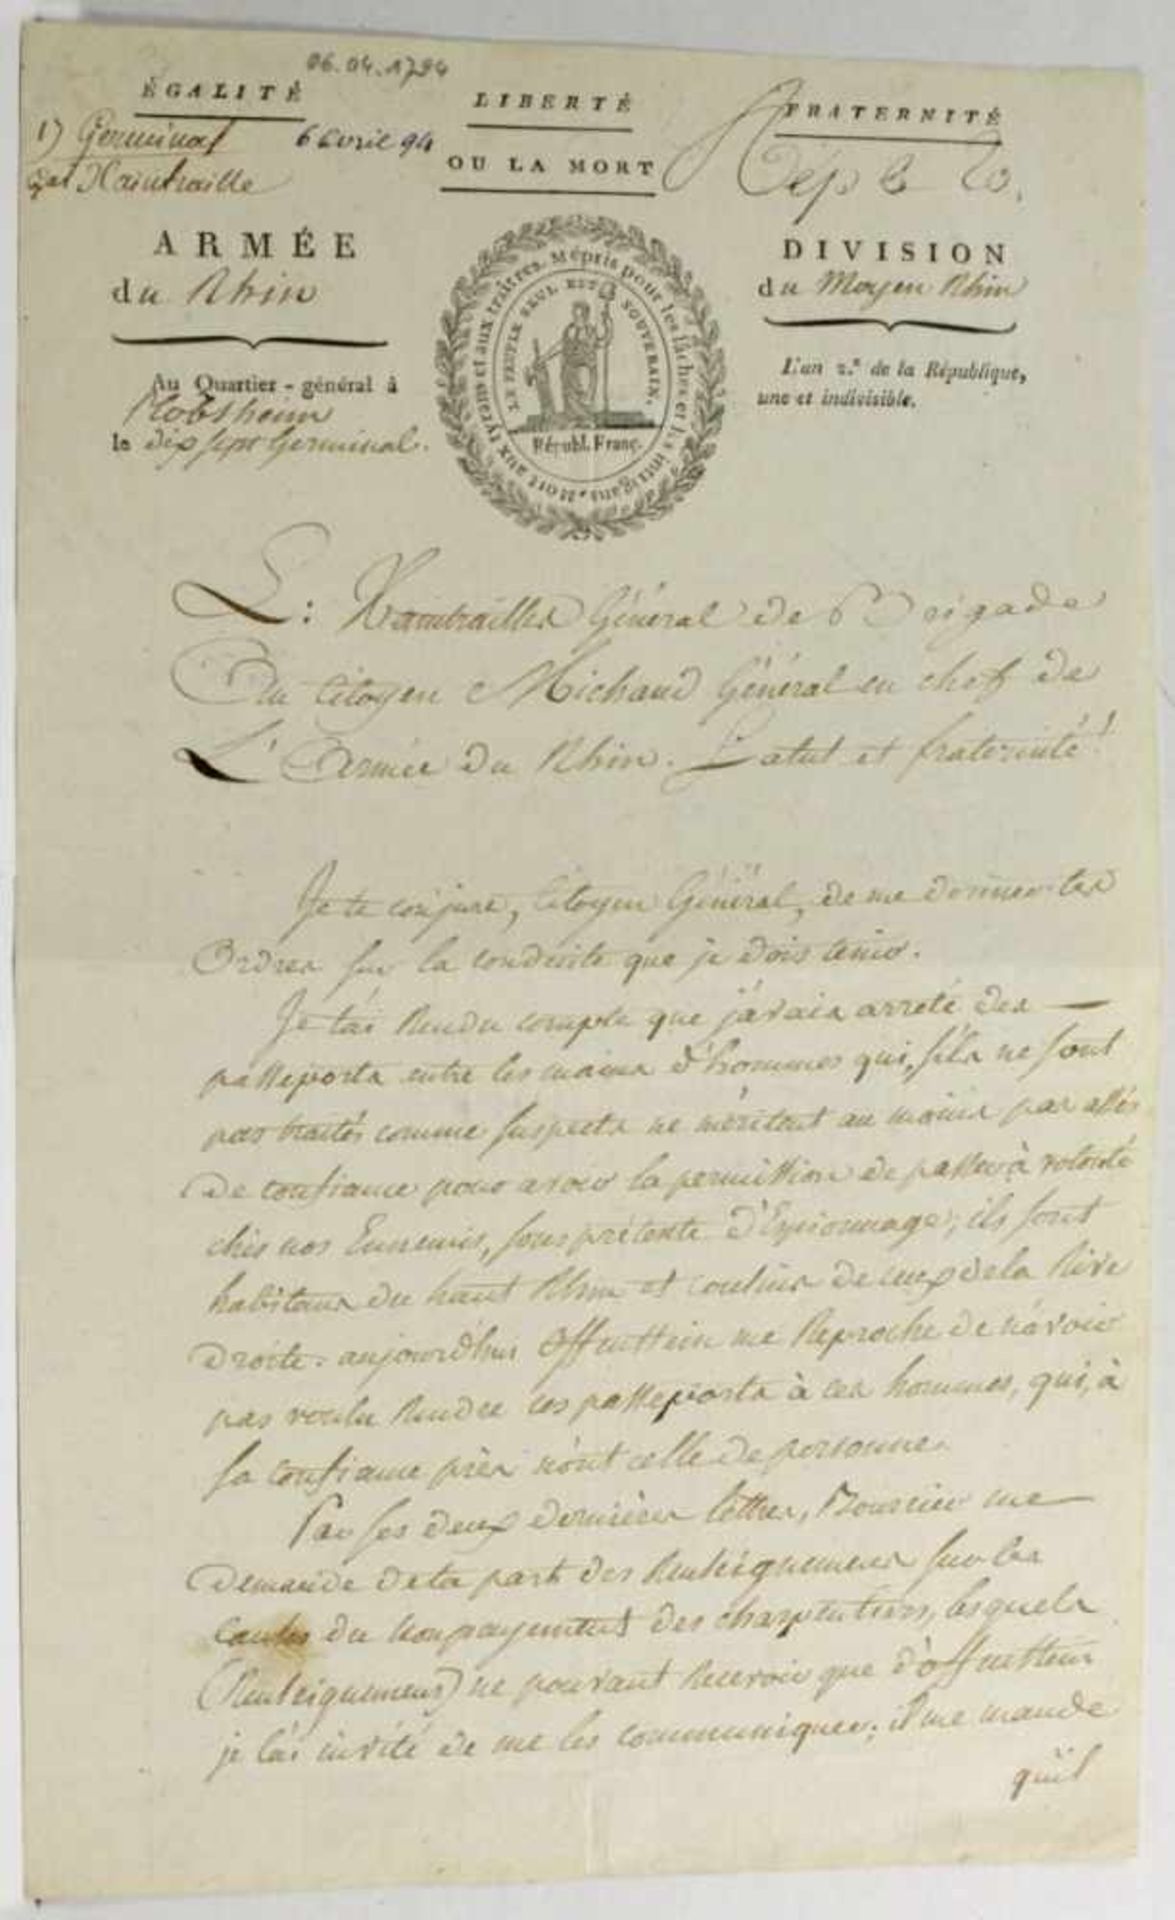 06.04.1794
ÉGALITÉ
LIBERTÉ
FRATERNITÉ
17 Germinal 6 avril 94
OU LA MORT
gal Xaintraille
Rép le 20.
ARMÉE
DIVISION
du Rhin
du Moyen Rhin
Mort aux tyrans et aux traîtres. Mépris pour les lâches et les intrigans
LE PEUPLE SEUL EST SOUVERAIN.
Républ. Franç.
Au Quartier-général à
Plobsheim
le dix sept Germinal.
L'an 2.e de la République,
une et indivisible.
L: Xaintrailles Général de Brigade
Au Citoyen Michaud Général en chef de
L'Armée du Rhin. Salut et fraternité!
Je te conjure, Citoyen Général, de me donner tes
Ordres sur la conduite que je dois tenir.
Je t'ai Rendu compte que j'avais arreté des
passeports entre les mains d'hommes qui, s'ils ne sont
pas traités comme suspects ne méritent au moins pas assés
de confiance pour avoir la permission de passer à volonté
chés nos Ennemis, sous prétexte d'Espionnage; ils sont
habitans du haut Rhin et cousins de ceux de la Rive
droite. aujourd'hui Offenstein me Reproche de n'avoir
pas voulu Rendre ces passeports à ces hommes, qui, à
sa confiance près n'ont celle de personne.
Par ses deux dernières lettres, Bourcier me
demande de ta part des Renseignemens sur les
Causes du non payement des charpentiers, lesquels
(Renseignemens) ne pouvant Recevoir que d'Offenstein
je l'ai invité de me les communiquer; il me mande
qu'il